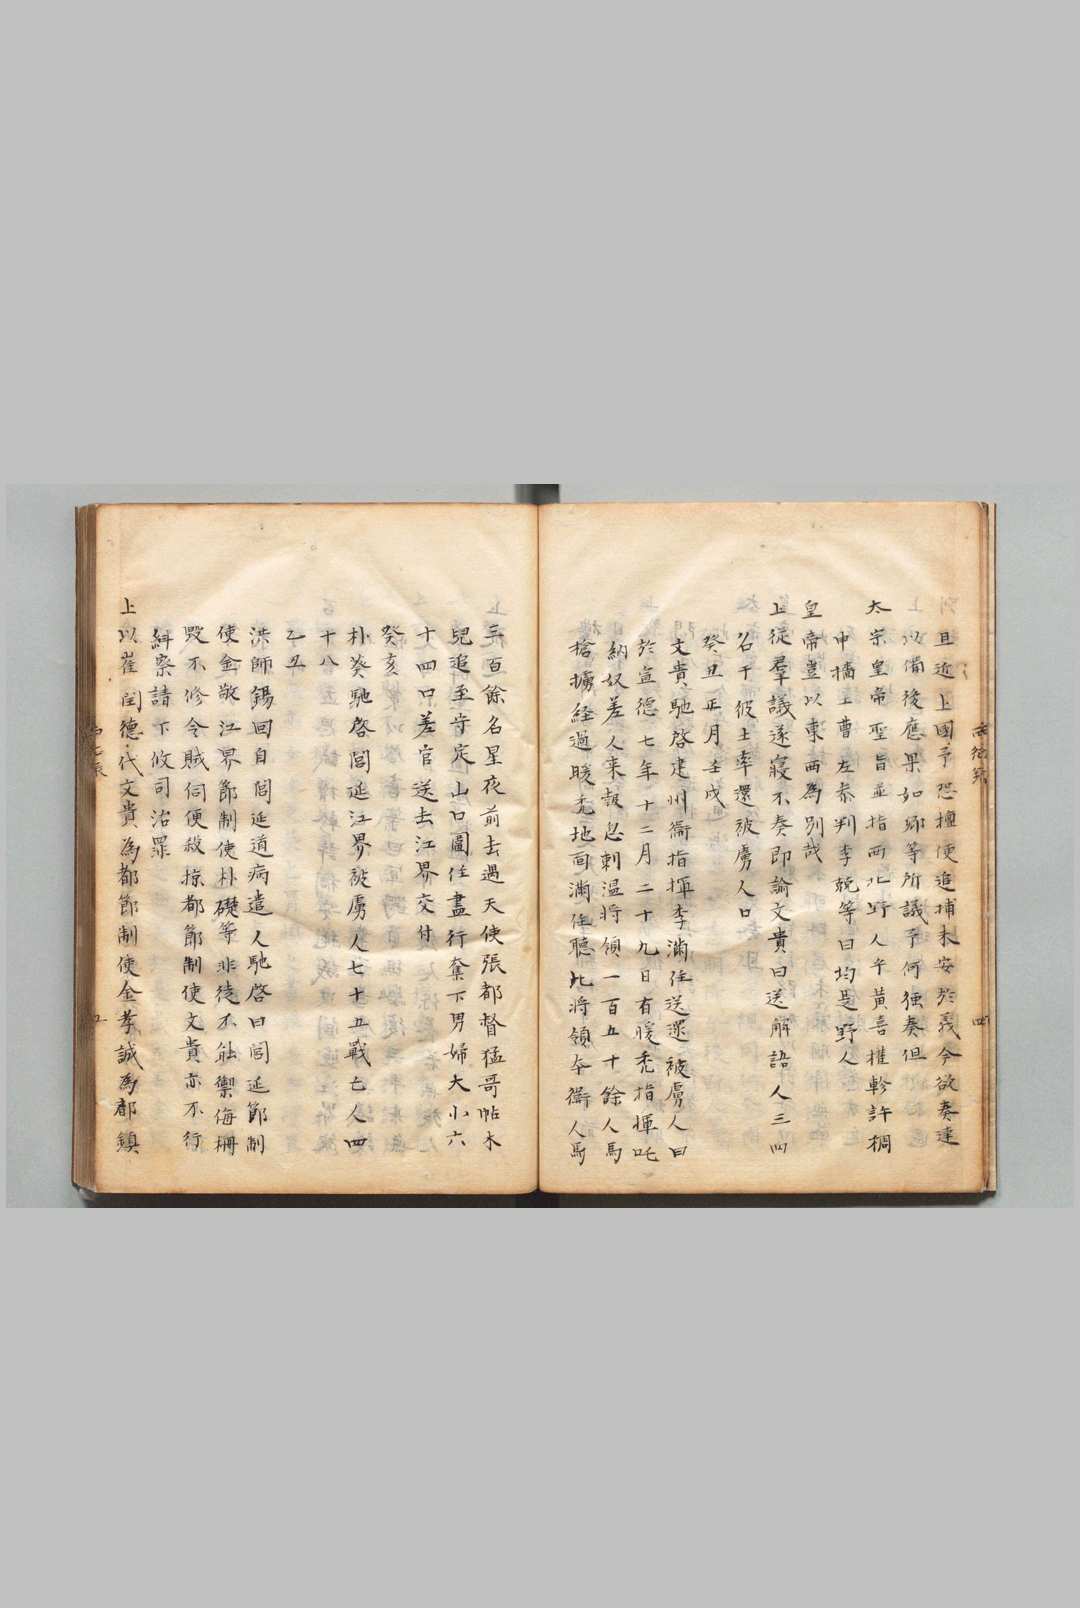 且近上國予恐擅便追捕未安於義今欲奏達
以備後應果如卿等所議予何强奏但
太宗皇帝聖旨並指西北野人乎黃喜權軫許稠
申檣上曹左叅判李兢等曰均是野人
皇帝豈以東西為別哉
上從羣議遂寢不奏即諭文貴曰送解語人三四
名于彼土率還被虜人口
癸丑正月壬戌
文貴馳啓建州衞指揮李滿住送還被虜人曰
於宣德七年十二月二十九日有暖禿指揮吒
納奴差人来報忽剌温將領一百五十餘人馬
搶擄経過暖禿地面滿住聽此將領夲衞人馬
三百餘名星夜前去遇天使張都督猛哥帖木
兒追至守定山口圍住盡行奪下男婦大小六
十四口差官送去江界交付
癸亥
朴葵馳啓閭延江界被虜人七十五戰亡人四
十八
乙丑
洪師錫回自閭延道病遣人馳啓曰閭延節制
使金敬江界節制使朴礎等非徒不能禦侮柵
毁不修令賊伺便殺掠都節制使文貴亦不行
糾察請下攸司治罪
上以崔閏德代文貴為都節制使金孝誠為都鎮
五